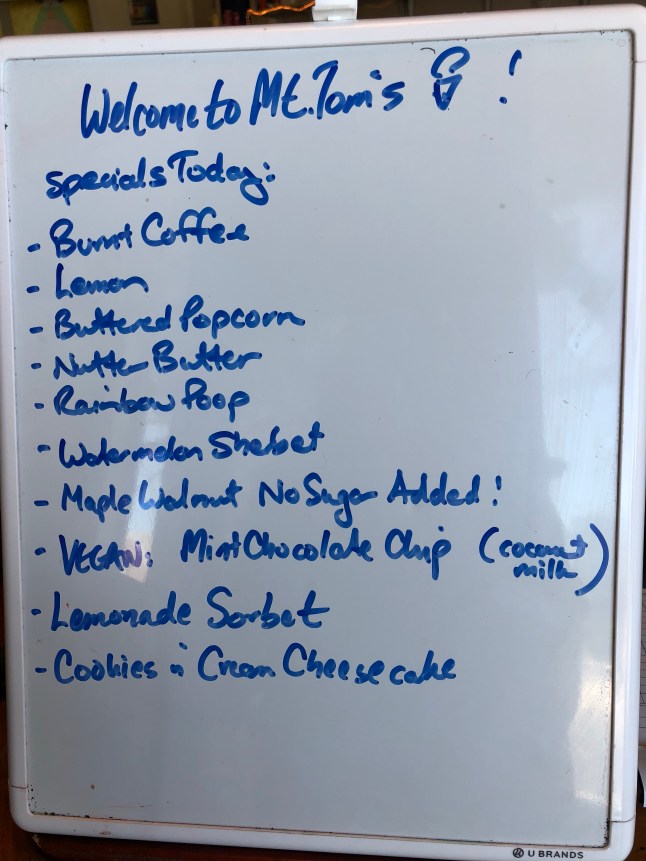 Welcome to Mt. Tom's !
Specials Today:
- Burnt Coffee
- Lemon
- Buttered Popcorn
- Nutter Butter
- Rainbow Poop
- Watermelon Sherbet
- Maple Walnut No Sugar Added!
- VEGAN: Mint Chocolate Chip (coconut milk)
- Lemonade Sorbet
- Cookies n Cream Cheesecake
U BRANDS